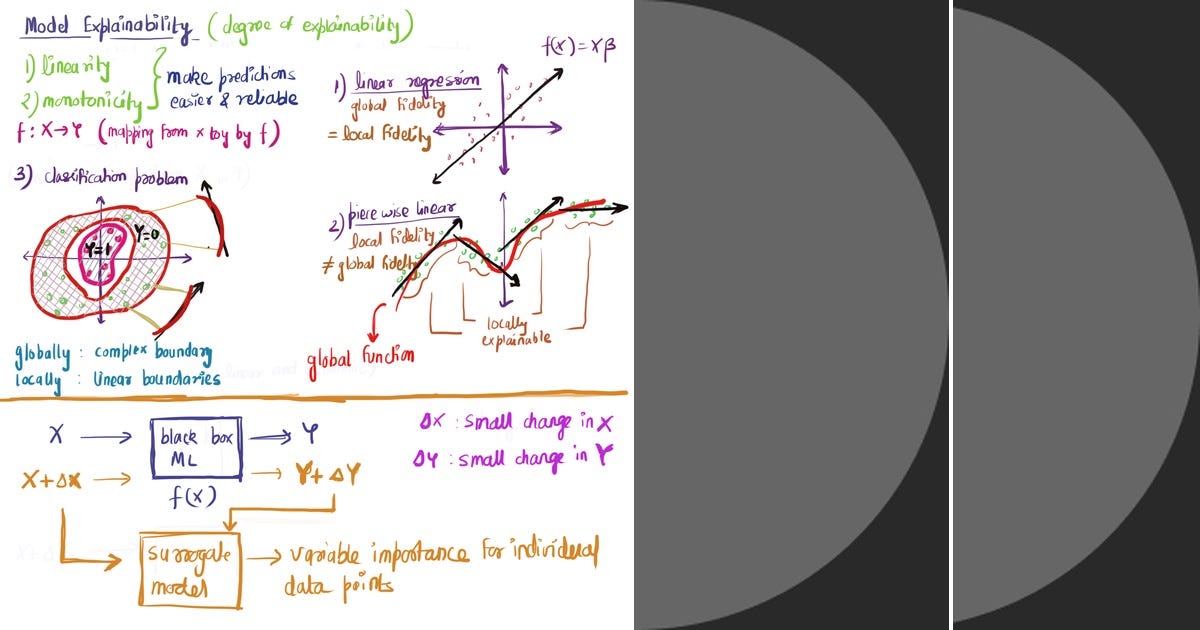 Model Explainability (degree of explainability)
1) linearity
2) monotonicity
make predictions
easier & reliable
f: X→Y (mapping from x to y by f)
1) linear regression
global fidelity
= local fidelity
f(x) = Xβ
3) classification problem
Y=1
Y=0
2) piece wise linear
local fidelity
≠ global fidelity
locally
explainable
global function
globally : complex boundary
locally : linear boundaries
X → black box ML → Y
X+ΔX → Y+ΔY
f(x)
ΔX : small change in X
ΔY : small change in Y
surrogate
model
→ variable importance for individual
data points